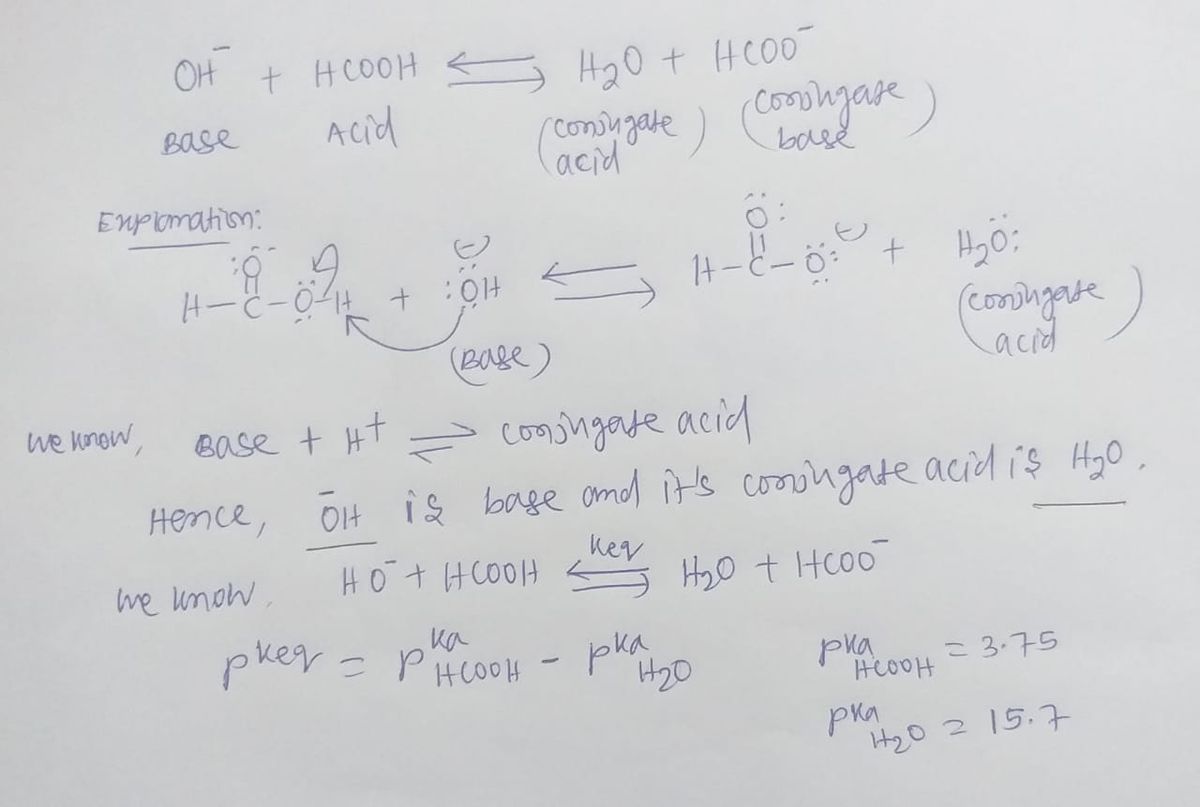 OH⁻ + HCOOH ⇌ H₂O + HCOO⁻
Base Acid (conjugate acid) (conjugate base)
Explanation:
H–C(=Ö:)–Ö–H + :ÖH⁻ ⇌ H–C(=Ö:)–Ö:⁻ + H₂Ö:
(Base) (conjugate acid)
we know, Base + H⁺ ⇌ conjugate acid
Hence, ŌH is base and it's conjugate acid is H₂O.
we know, HO⁻ + HCOOH ⇌ Keq H₂O + HCOO⁻
pKeq = pKa HCOOH - pKa H₂O pKa HCOOH = 3.75
pKa H₂O = 15.7